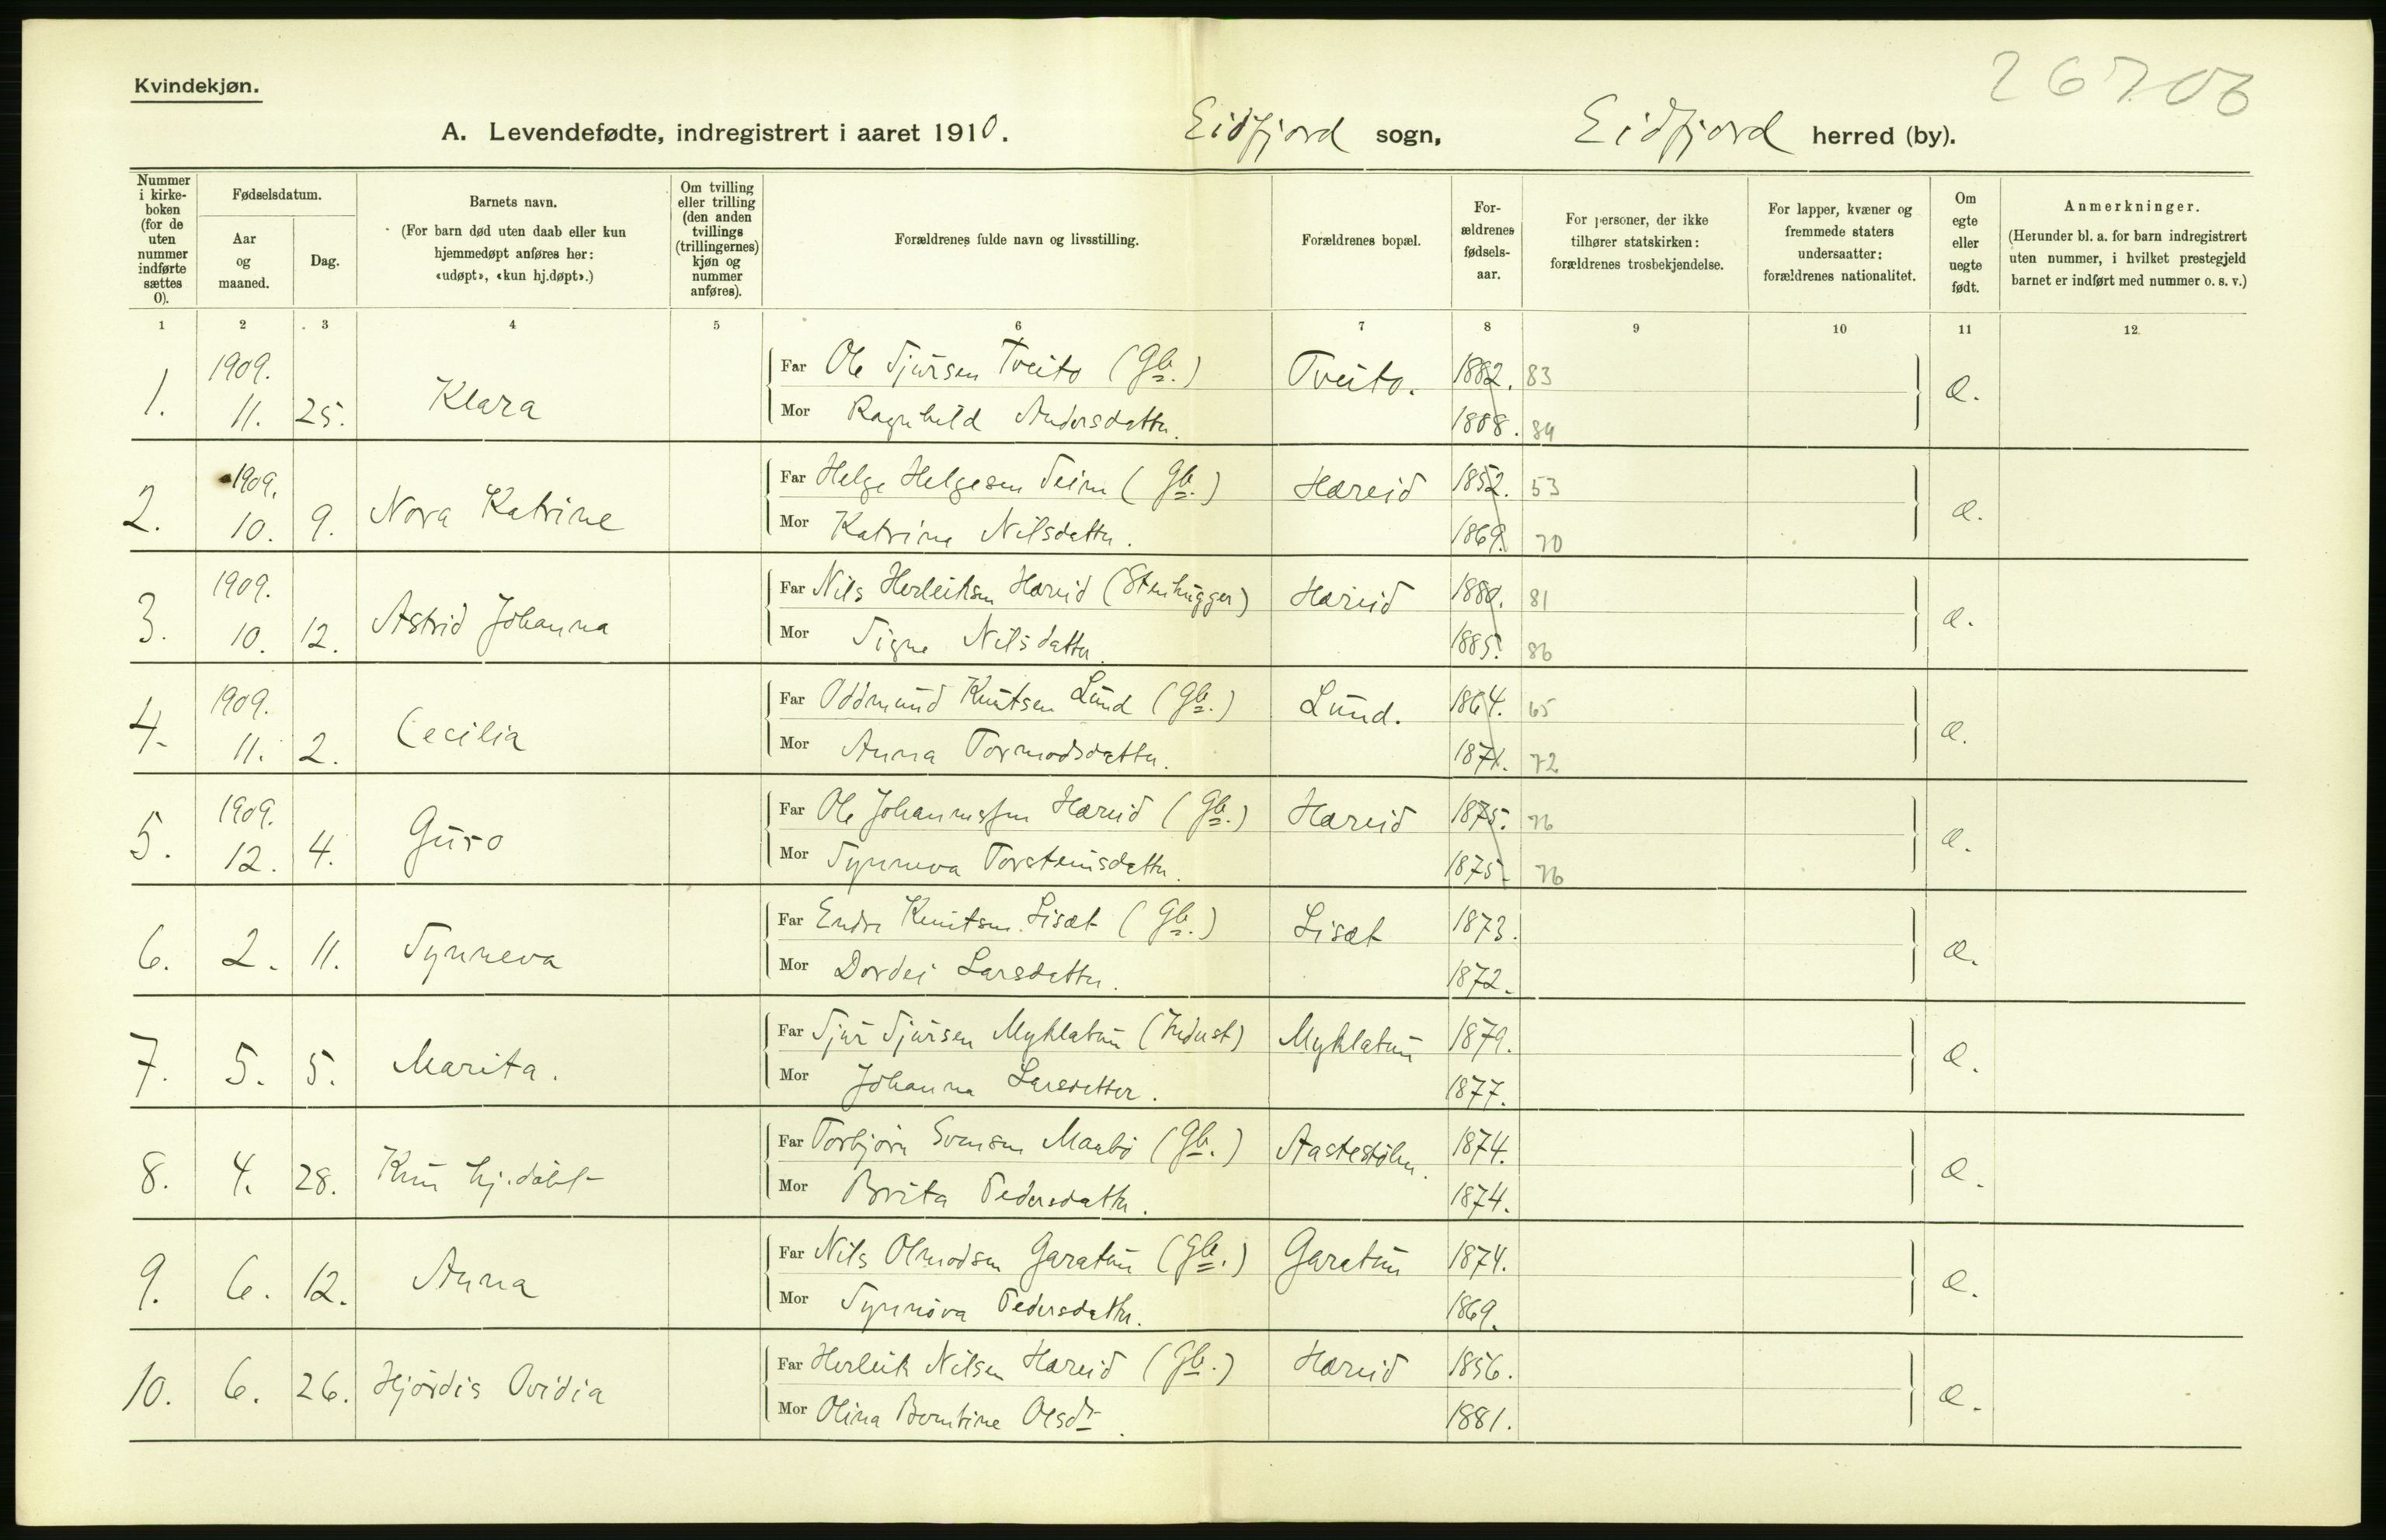 Kvindekjøn.
26706
A. Levendefødte, indregistrert i aaret 1910. Eidfjord sogn, Eidfjord herred (by).
Nummer i kirke-boken (for de uten nummer indførte sættes 0).
Fødselsdatum.
Aar og maaned.
Dag.
Barnets navn.
(For barn død uten daab eller kun hjemmedøpt anføres her: «udøpt», «kun hj.døpt».)
Om tvilling eller trilling (den anden tvillings (trillingernes) kjøn og nummer anføres).
Forældrenes fulde navn og livsstilling.
Forældrenes bopæl.
For-ældrenes fødsels-aar.
For personer, der ikke tilhører statskirken: forældrenes trosbekjendelse.
For lapper, kvæner og fremmede staters undersaatter: forældrenes nationalitet.
Om egte eller uegte født.
Anmerkninger.
(Herunder bl. a. for barn indregistrert uten nummer, i hvilket prestegjeld barnet er indført med nummer o. s. v.)
1 2 3 4 5 6 7 8 9 10 11 12.
1. 1909. 11. 25. Klara
Far Ole Sjursen Tveito (Gb.) Tveito. 1882. 83 æ.
Mor Ragnhild Andersdatter. 1888. 89
2. 1909. 10. 9. Nora Katrine
Far Helge Helgesen Seim (Gb.) Hæreid 1852. 53 æ.
Mor Katrina Nilsdatter. 1869. 70
3. 1909. 10. 12. Astrid Johanna
Far Nils Herleiksen Hæreid (Stenhugger) Hæreid 1880. 81 æ.
Mor Signe Nilsdatter. 1885. 86
4. 1909. 11. 2. Cecilia
Far Oddmund Knutsen Lund (Gb.) Lund. 1864. 65 æ.
Mor Anna Tormodsdatter. 1871. 72
5. 1909. 12. 4. Guro
Far Ole Johannessen Hæreid (Gb.) Hæreid 1875. 76 æ.
Mor Synneva Torsteinsdatter. 1875. 76
6. 2. 11. Synneva
Far Endre Knutsen Lisæt (Gb.) Lisæt 1873. æ.
Mor Dordei Larsdatter. 1872.
7. 5. 5. Marita.
Far Sjur Sjursen Myklatun (Indust) Myklatun 1879. æ.
Mor Johanna Larsdatter. 1877.
8. 4. 28. Kun hj.døbt
Far Torbjørn Svensen Maabø (Gb.) Aastestølen. 1874. æ.
Mor Brita Pedersdatter. 1874.
9. 6. 12. Anna
Far Nils Olmodsen Garatun (Gb.) Garatun 1874. æ.
Mor Synnøva Pedersdatter. 1869.
10. 6. 26. Hjørdis Ovidia
Far Herleik Nilsen Hæreid (Gb.) Hæreid 1856. æ.
Mor Olina Berntine Olsdr. 1881.